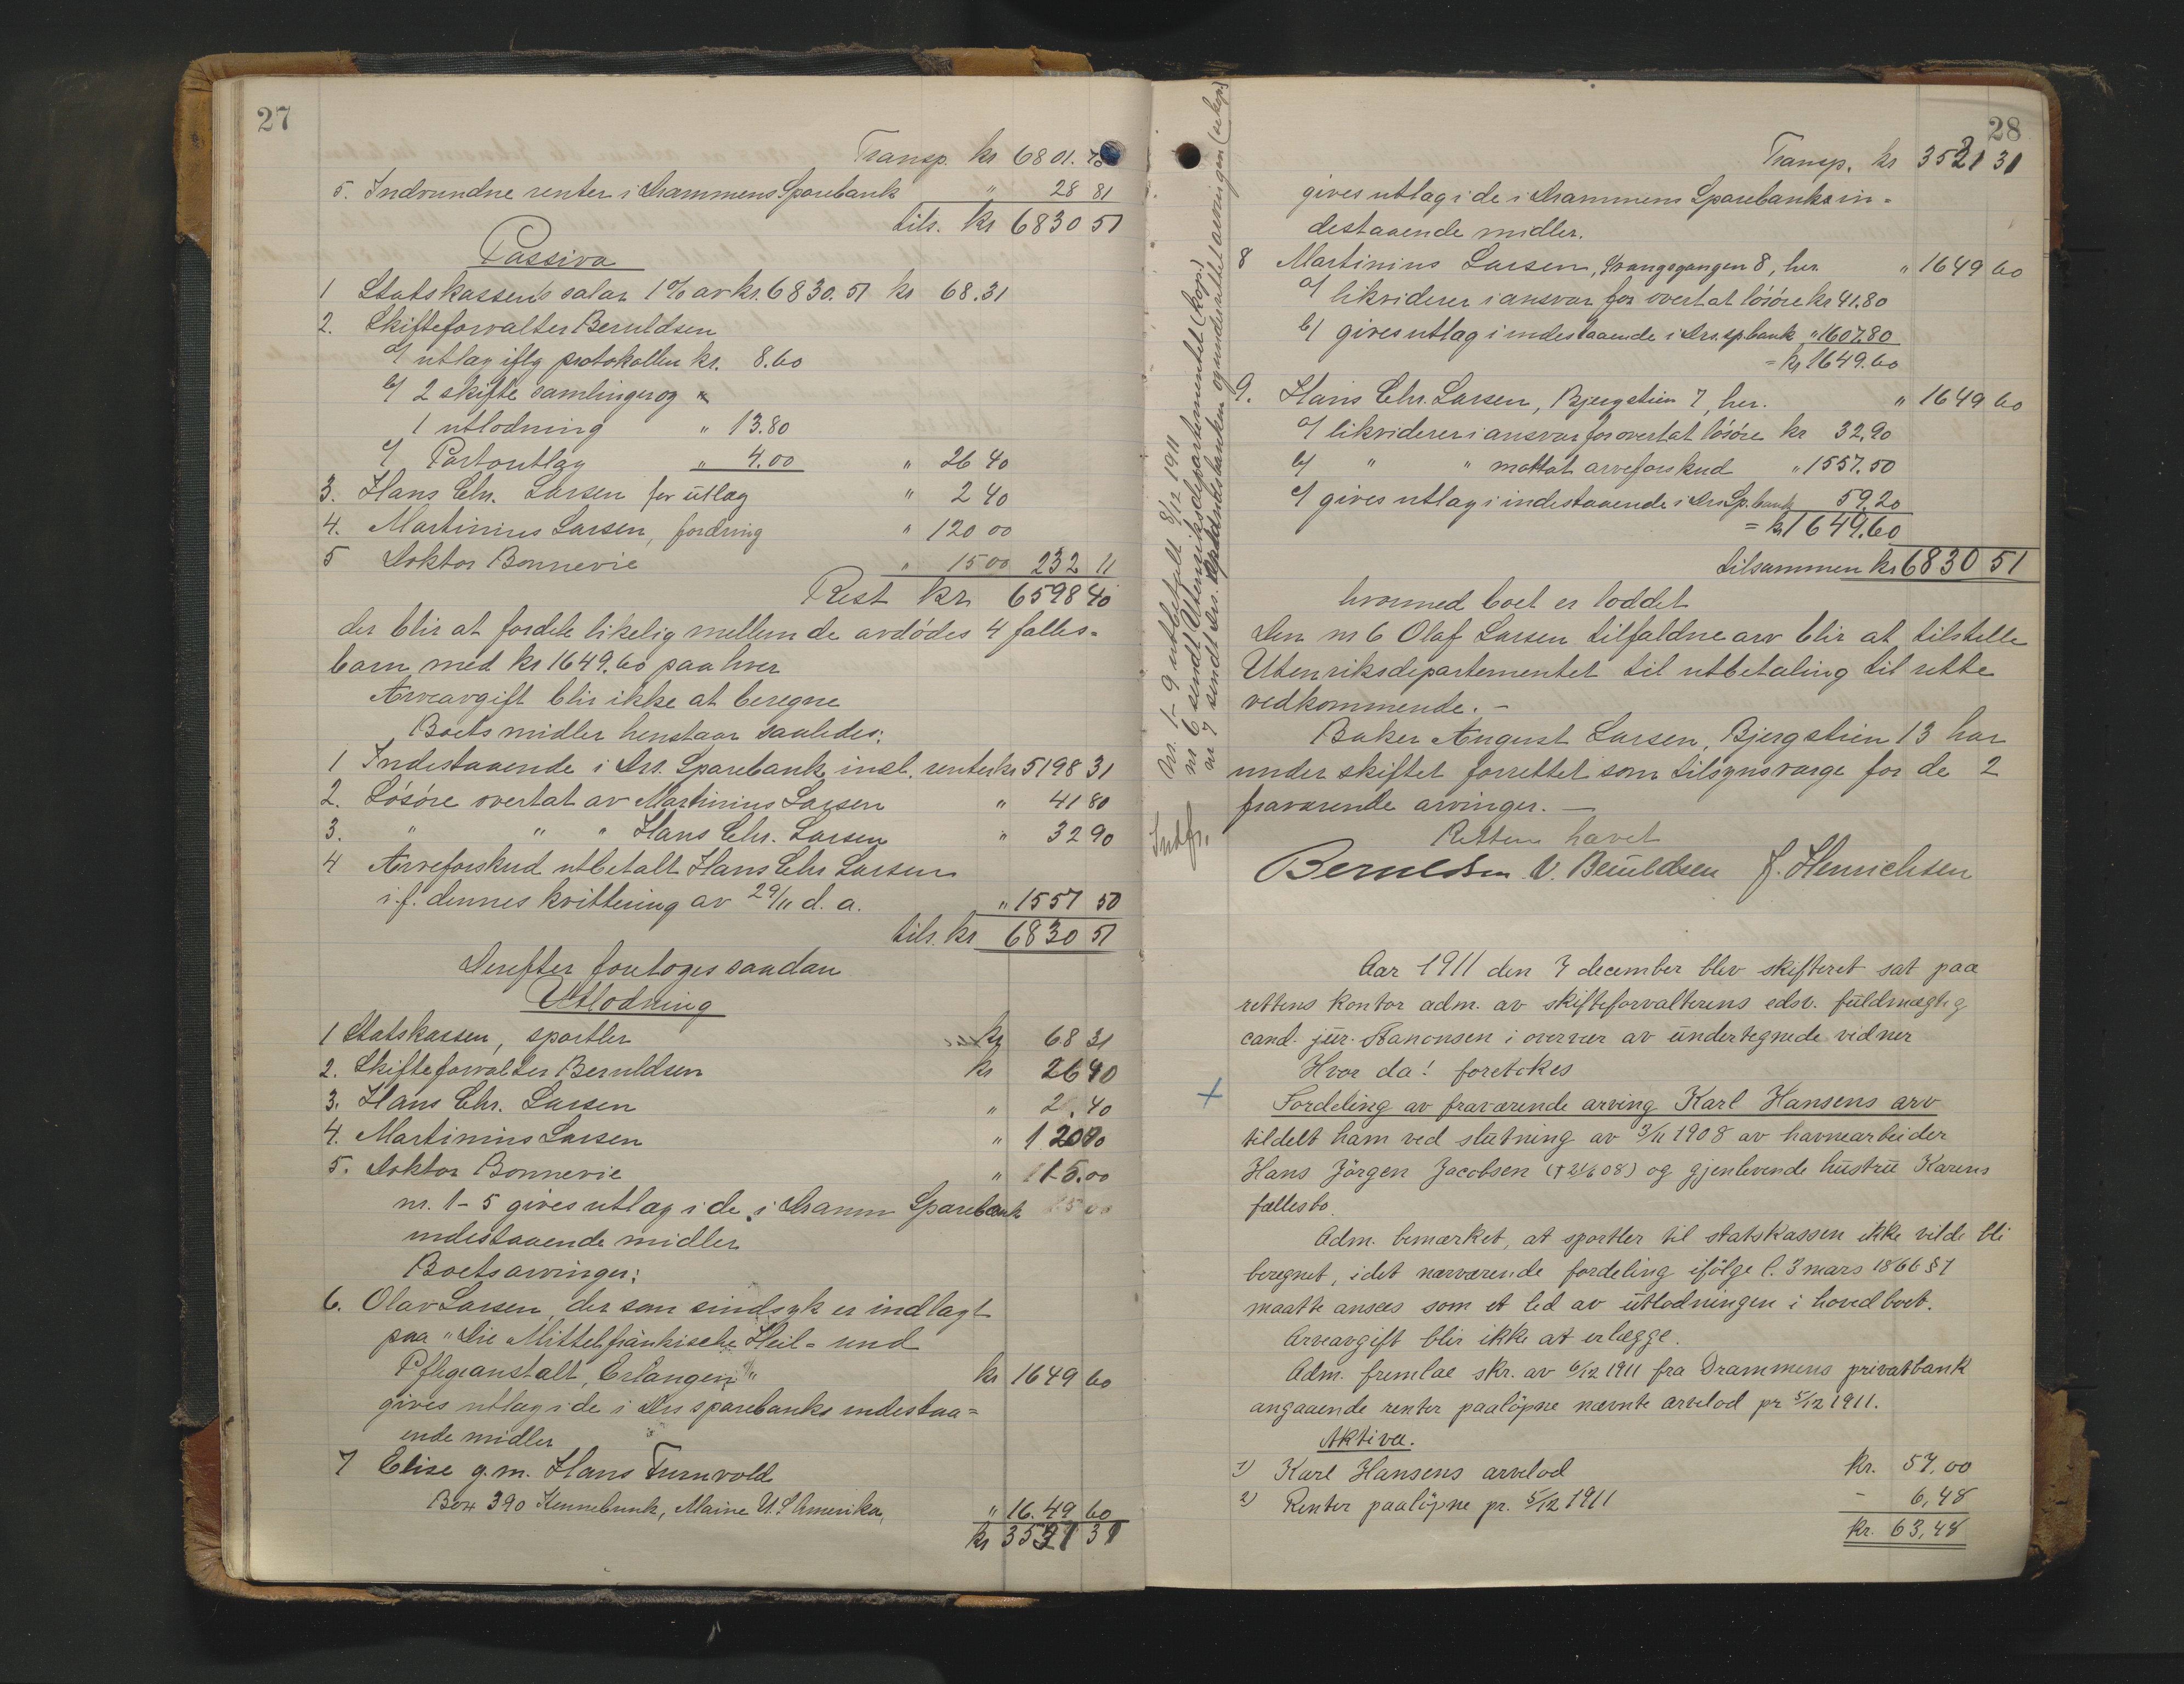 27
Transp. kr 6801.70
5. Indvundne renter i Drammens Sparebank " 28 81
tils. kr 6830 51
Passiva
1 Statskassens salær 1% av kr. 6830.51 kr 68.31
2. Skifteforvalter Beruldsen
a/ utlæg iflg protokollen kr. 8.60
b/ 2 skiftesamlinger og
1 utlodning " 13.80
c/ Portoutlæg " 4.00 " 26 40
3. Hans Chr. Larsen for utlæg " 2 40
4. Martinius Larsen, fordring " 120 00
5 Doktor Bonnevie " 15 00 232 11
Rest kr. 6598 40
der blir at fordele likelig mellem de avdødes 4 fælles-
barn med kr 1649.60 paa hver
Arveavgift blir ikke at beregne
Boets midler henstaar saaledes:
1 Indestaaende i Drs. Sparebank incl. renter kr 5198 31
2. Løsøre overtat av Martinius Larsen " 41 80
3. " " " Hans Chr. Larsen " 32 90
4 Arveforskud utbetalt Hans Chr Larsen
i.f. dennes kvittering av 29/11 d. a. " 1557 50
tils. kr 6830 51
Derefter foretoges saadan
Utlodning
1 Statskassen, sportler kr 68 31
2. Skifteforvalter Beruldsen kr 26 40
3. Hans Chr. Larsen " 2.40
4. Martinius Larsen " 120 00
5. Doktor Bonnevie " 15.00
nr. 1-5 gives utlæg i de i Dramm Sparebank
indestaaende midler
Boets arvinger:
6. Olav Larsen, der som sindsyk er indlagt
paa "Die Mittelfränkische Heil- und
Pflegeanstalt, Erlangen" kr 1649 60
gives utlæg i de i Drs sparebanks indestaa-
ende midler
7 Elise g.m. Hans Turnvold
Box 390 Kennebunk, Maine U.S Amerika, " 16.49 60
kr 3531 31
28
Transp. kr 3531 31
gives utlæg i de i Drammens Sparebanks in-
destaaende midler.
8 Martinius Larsen, Prangsgangen 8, her. " 1649 60
a/ likviderer i ansvar for overtat løsøre kr 41.80
b/ gives utlæg i indestaaende i Drs. sp.bank " 1607.80
= kr 1649.60
9. Hans Chr. Larsen, Bjergstien 7, her. " 1649 60
a/ likviderer i ansvar for overtat løsøre kr 32.90
b/ " " mottat arveforskud " 1557.50
c/ gives utlæg i indestaaende i Drs. Sp.bank 59.20
= kr 1649.60
tilsammen kr 6830 51
hvormed boet er loddet
Den nr 6 Olaf Larsen tilfaldne arv blir at tilstille
Utenriksdepartementet til utbetaling til rette
vedkommende. -
Baker August Larsen, Bjergstien 13 har
under skiftet forrettet som tilsynsværge for de 2
fraværende arvinger. -
Retten hævet
Beruldsen V. Beruldsen J. Henrichsen
Nr. 1-9 utbetalt 8/12 1911
nr 6 sendt Utenriksdepartementet (kopi)
Aar 1911 den 7 december blev skifteret sat paa
rettens kontor adm. av skifteforvalterens edsv. fuldmægtig
cand. jur. Aanonsen i overvær av undertegnede vidner
Hvor da! foretokes
+ Fordeling av fraværende arving Karl Hansens arv
tildelt ham ved slutning av 3/11 1908 av havnearbeider
Hans Jörgen Jacobsen († 21/6 08) og gjenlevende hustru Karens
fællesbo.
Adm. bemærket, at sportler til statskassen ikke vilde bli
beregnet, idet nærværende fordeling ifölge l. 3 mars 1866 § 7
maatte ansees som et led av utlodningen i hovedboet.
Arveavgift blir ikke at erlægge.
Adm. fremlae skr. av 6/12 1911 fra Drammens privatbank
angaaende renter paalöpne nævnte arvelod pr 5/12 1911.
Aktiva.
1) Karl Hansens arvelod kr. 57,00
2) Renter paalöpne pr. 5/12 1911 - 6,48
kr. 63,48